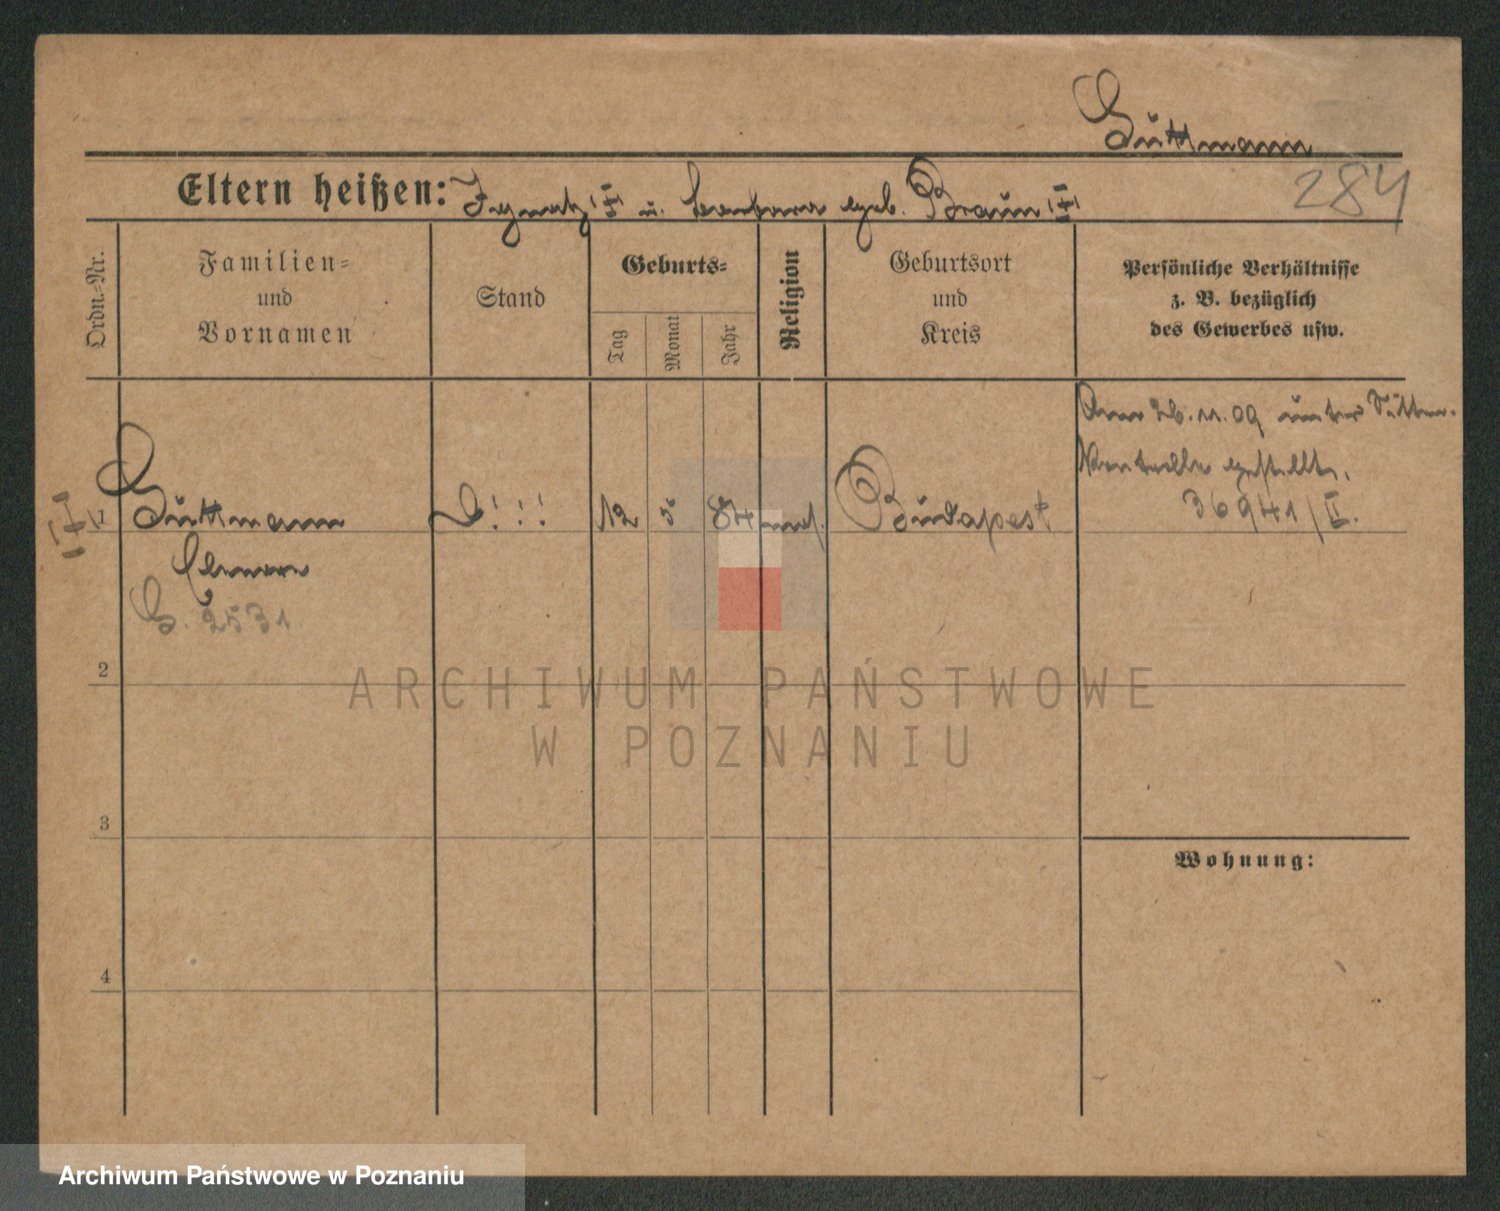 Guttmann
284
Eltern heißen: Ignatz (†) u. Barbara geb. Braun (†)
Ordn.-Nr.
Familien-
und
Vornamen
Stand
Geburts-
Tag
Monat
Jahr
Religion
Geburtsort
und
Kreis
Persönliche Verhältnisse
z. B. bezüglich
des Gewerbes usw.
Am 26.11.09 unter Sitten-
Kontrolle gestellt.
36941/II.
1
Guttmann
!!!
12
5
84
mos.
Budapest
G. 2531
2
3
4
Wohnung:
ARCHIWUM PAŃSTWOWE
W POZNANIU
Archiwum Państwowe w Poznaniu